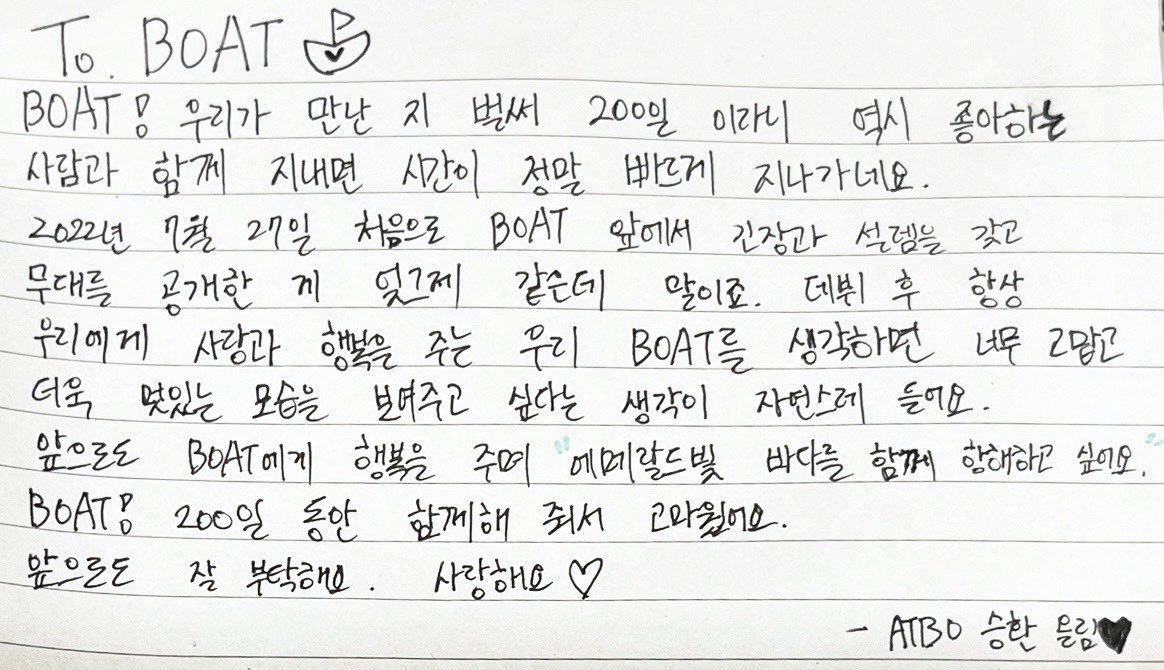 To. BOAT
BOAT! 우리가 만난 지 벌써 200일 이라니 역시 좋아하는
사람과 함께 지내면 시간이 정말 빠르게 지나가네요.
2022년 7월 27일 처음으로 BOAT 앞에서 긴장과 설렘을 갖고
무대를 공개한 게 엊그제 같은데 말이죠. 데뷔 후 항상
우리에게 사랑과 행복을 주는 우리 BOAT를 생각하면 너무 고맙고
더욱 멋있는 모습을 보여주고 싶다는 생각이 자연스레 들어요.
앞으로도 BOAT에게 행복을 주며 "에메랄드빛 바다를 함께 항해하고 싶어요."
BOAT! 200일 동안 함께해 줘서 고마웠어요.
앞으로도 잘 부탁해요. 사랑해요 ♡
- ATBO 승환 올림♥